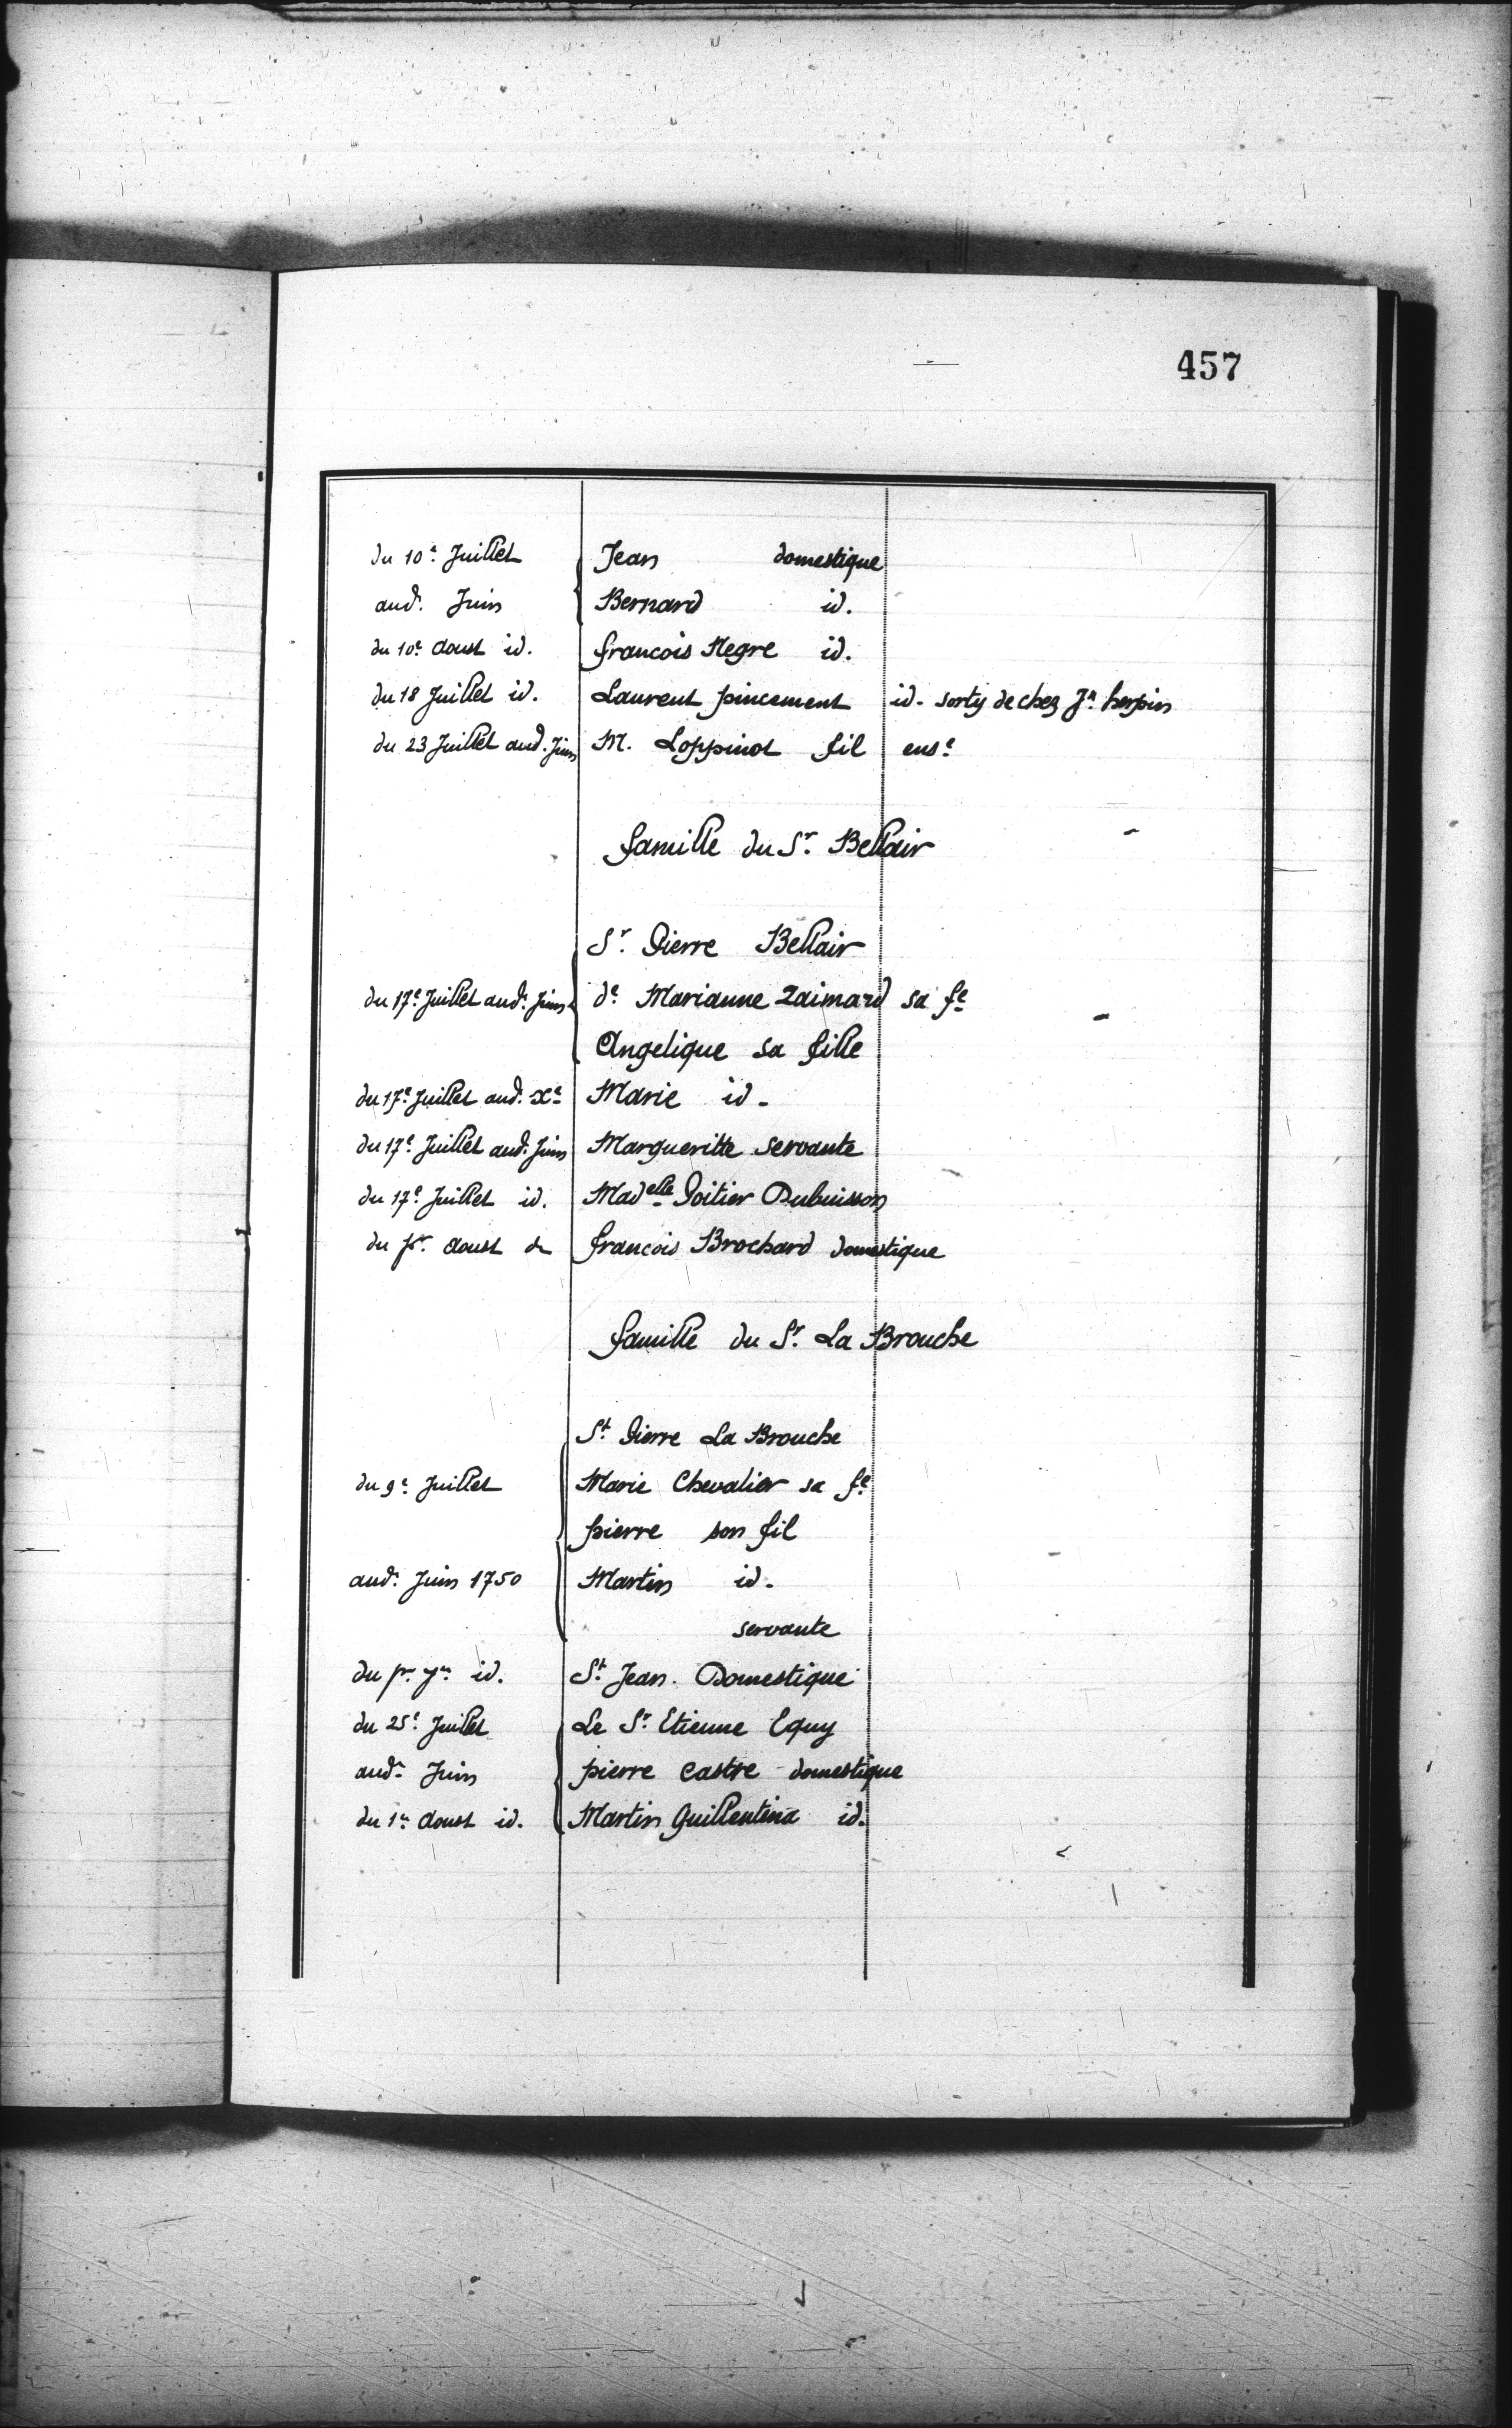 457
du 10e. Juillet Jean domestique
aud. Juin Bernard id.
du 10e aoust id. francois Negre id.
du 18 Juillet id. Laurent pincement id. sorty de chez Jn herpin
du 23 Juillet aud. Juin M. Loppinot fil ense
famille du Sr. Bellair
Sr. Pierre Bellair
du 17e Juillet aud. Juin de Marianne Zaimard sa fe
Angelique sa fille
du 17e Juillet aud. Xe Marie id.
du 17e Juillet aud. Juin Margueritte servante
du 17e Juillet id. Madelle Poitier Dubuisson
du pr. aoust francois Brochard domestique
famille du Sr. La Brouche
St. Pierre La Brouche
du 9e Juillet Marie Chevalier sa fe
pierre son fil
aud. Juin 1750 Martin id.
servante
du pr. 7re id. St. Jean Domestique
du 25e Juillet Le Sr. Etienne Equy
aud. Juin pierre castre domestique
du 1er aoust id. Martin Guillentena id.